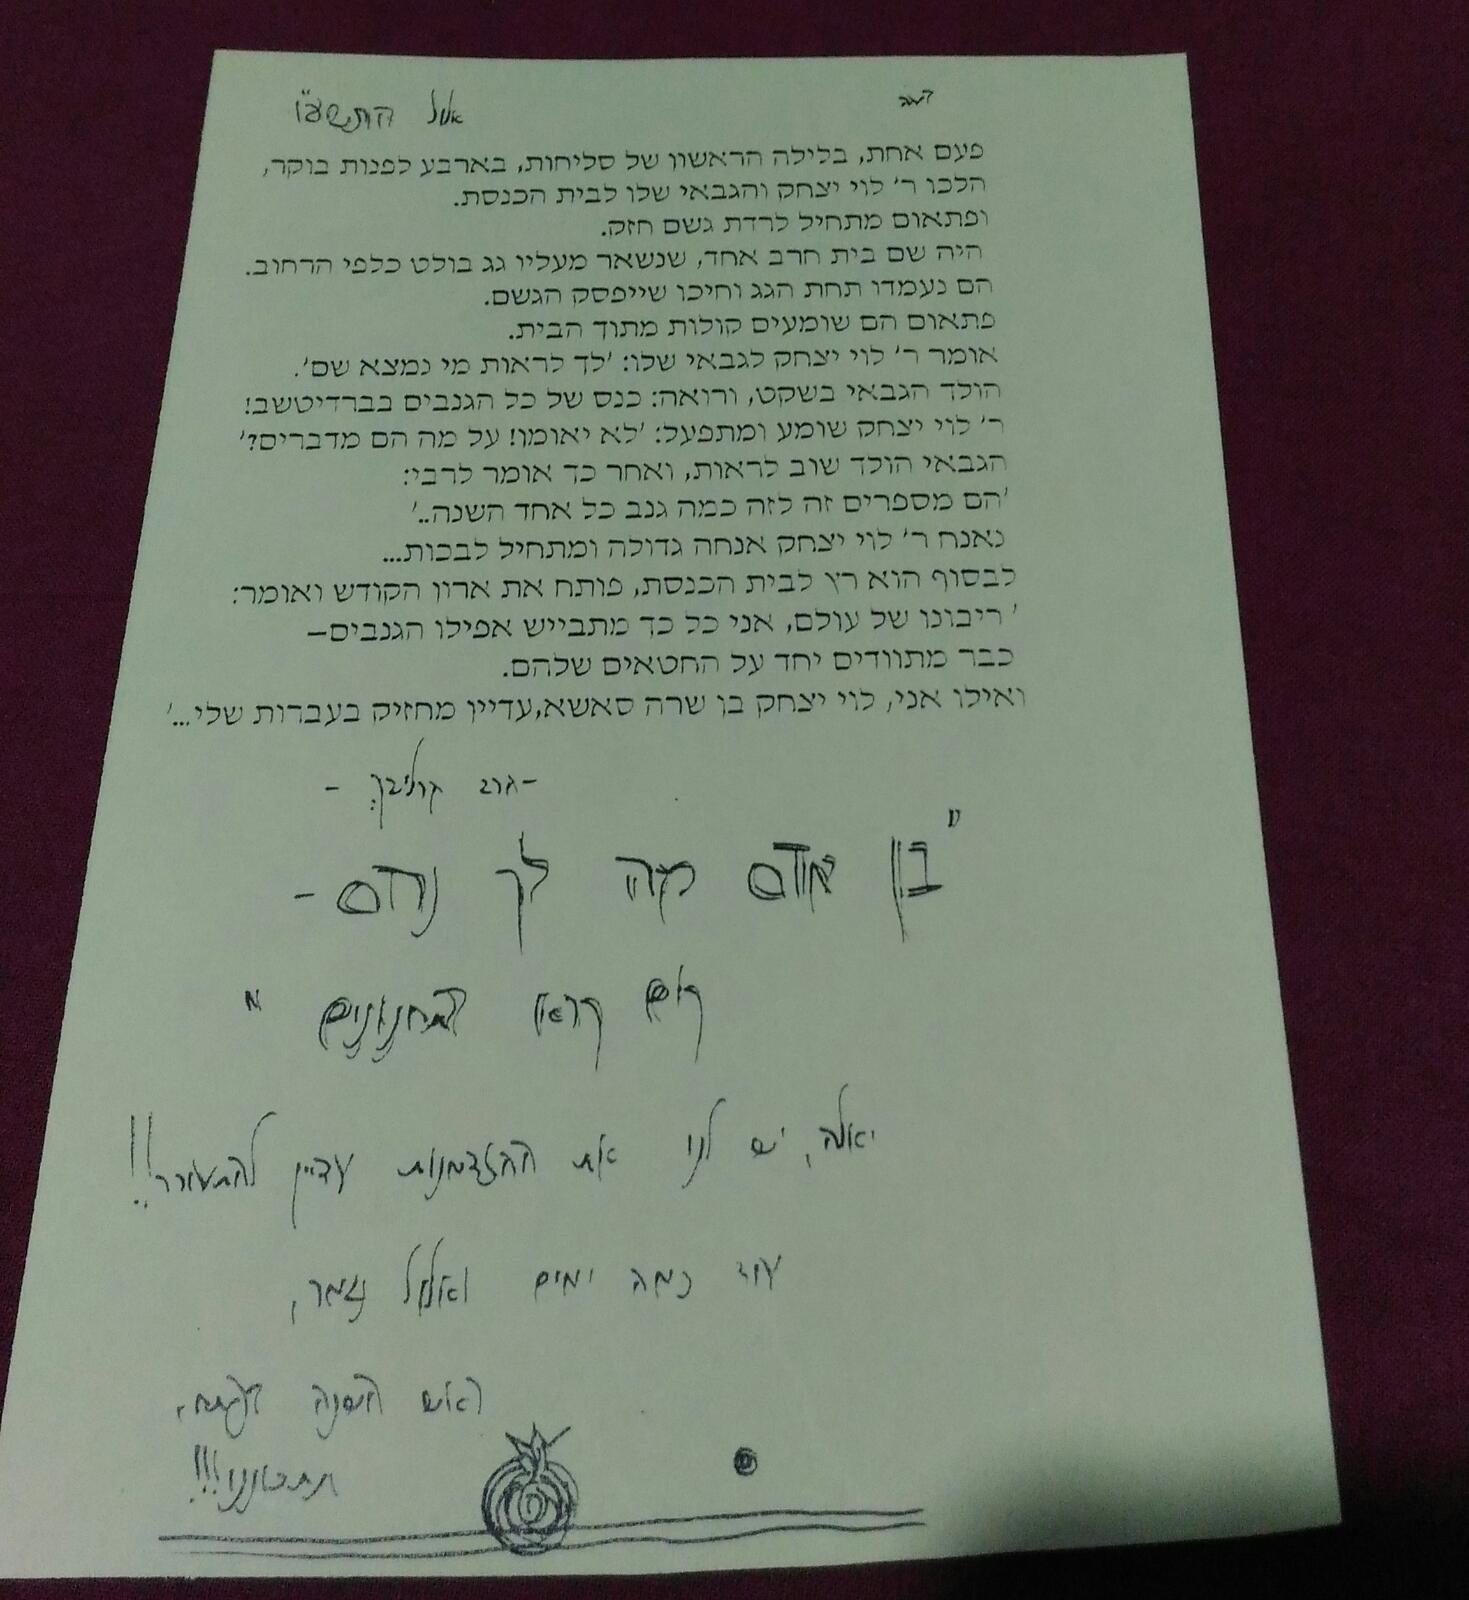 אלול התשע"ו
פעם אחת, בלילה הראשון של סליחות, בארבע לפנות בוקר,
הלכו ר' לוי יצחק והגבאי שלו לבית הכנסת.
ופתאום מתחיל לרדת גשם חזק.
היה שם בית חרב אחד, שנשאר מעליו גג בולט כלפי הרחוב.
הם נעמדו תחת הגג וחיכו שייפסק הגשם.
פתאום הם שומעים קולות מתוך הבית.
אומר ר' לוי יצחק לגבאי שלו: 'לך לראות מי נמצא שם'.
הולך הגבאי בשקט, ורואה: כנס של כל הגנבים בברדיטשב!
ר' לוי יצחק שומע ומתפעל: 'לא יאומן! על מה הם מדברים?'
הגבאי הולך שוב לראות, ואחר כך אומר לרבי:
'הם מספרים זה לזה כמה גנב כל אחד השנה..'
נאנח ר' לוי יצחק אנחה גדולה ומתחיל לבכות...
לבסוף הוא רץ לבית הכנסת, פותח את ארון הקודש ואומר:
' ריבונו של עולם, אני כל כך מתבייש אפילו הגנבים–
כבר מתוודים יחד על החטאים שלהם.
ואילו אני, לוי יצחק בן שרה סאשא,עדיין מחזיק בעברות שלי...'
- הרב קרליבך -
"בן אדם מה לך נרדם -
קום קרא בתחנונים"
יאלה, יש לנו את ההזדמנות עדיין להתעורר!!
עוד כמה ימים ואלול נגמר,
ראש השנה בפתח,
תתכוננו!!!